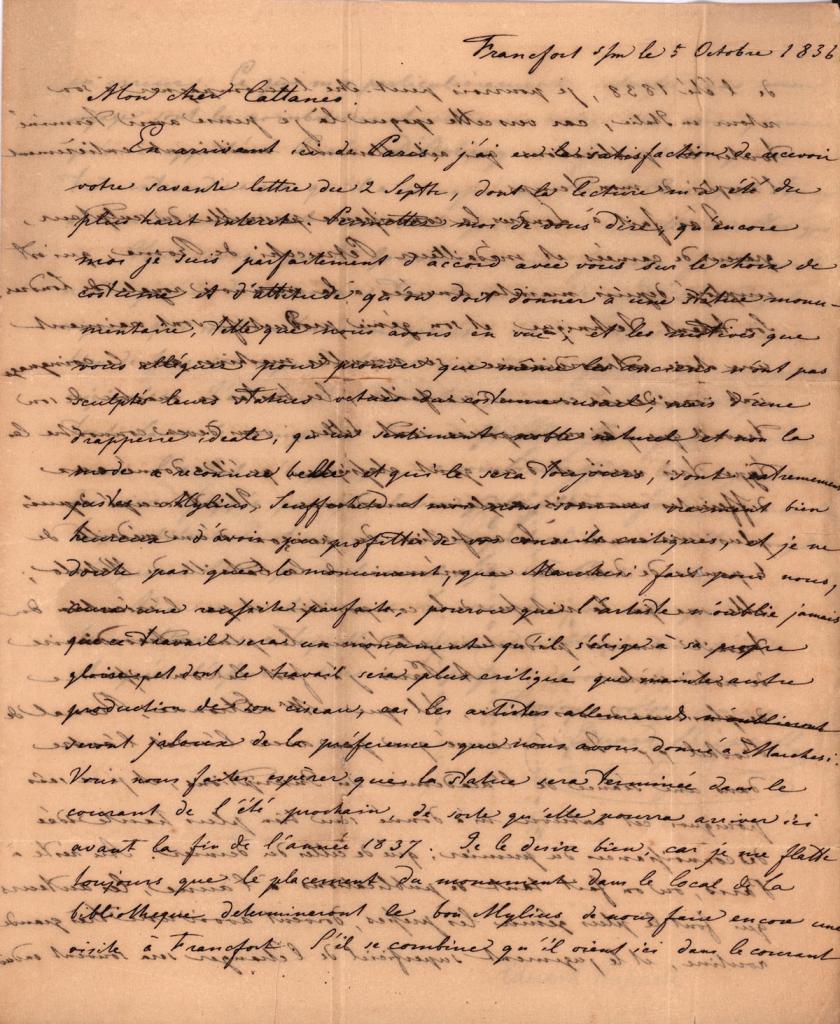 Francfort s/m le 5 Octobre 1836
Mon cher Cattaneo.
En arrivant ici de Paris, j'ai eu la satisfaction de recevoir
votre savante lettre du 2 Septbr, dont la lecture m'a été du
plus haut interet. Permettez moi de vous dire, qu'encore
moi je suis parfaitement d'accord avec vous sur le choix de
costume et d'attitude qu'on doit donner à une statue monu-
mentaire, telle que nous avons en vue, et les motives que
vous alléguez pour prouver que même les anciens n'ont pas
sculptés leurs statues vetues du costume usuel, mais d'une
drapperie ideale, qu'un sentiment noble naturel et non la
mode a reconnue belle et qui le sera toujours, sont extrememen
justes. Mylius, Seufferheld et moi nous sommes vraiment bien
heureux d'avoir pu profitter de vos conseils critiques, et je ne
doute pas que le monument, que Marchesi fait pour nous,
aura une reussite parfaite, pourvu que l'artiste n'oublie jamais
que ce travail sera un monument qu'il s'érige à sa propre
gloire, et dont le travail sera plus critiqué que mainte autre
production de son ciseau, car les artistes allemands
seront jaloux de la préference que nous avons donné à Marchesi.
Vous nous faites espérer que la statue sera terminée dans le
courant de l'été prochain, de sorte qu'elle pourra arriver ici
avant la fin de l'année 1837. Je le desire bien, car je me flatte
toujours que le placement du monument dans le local de la
bibliotheque determineront le bon Mylius de nous faire encore une
visite à Francfort. S'il se combine qu'il vient ici dans le courant